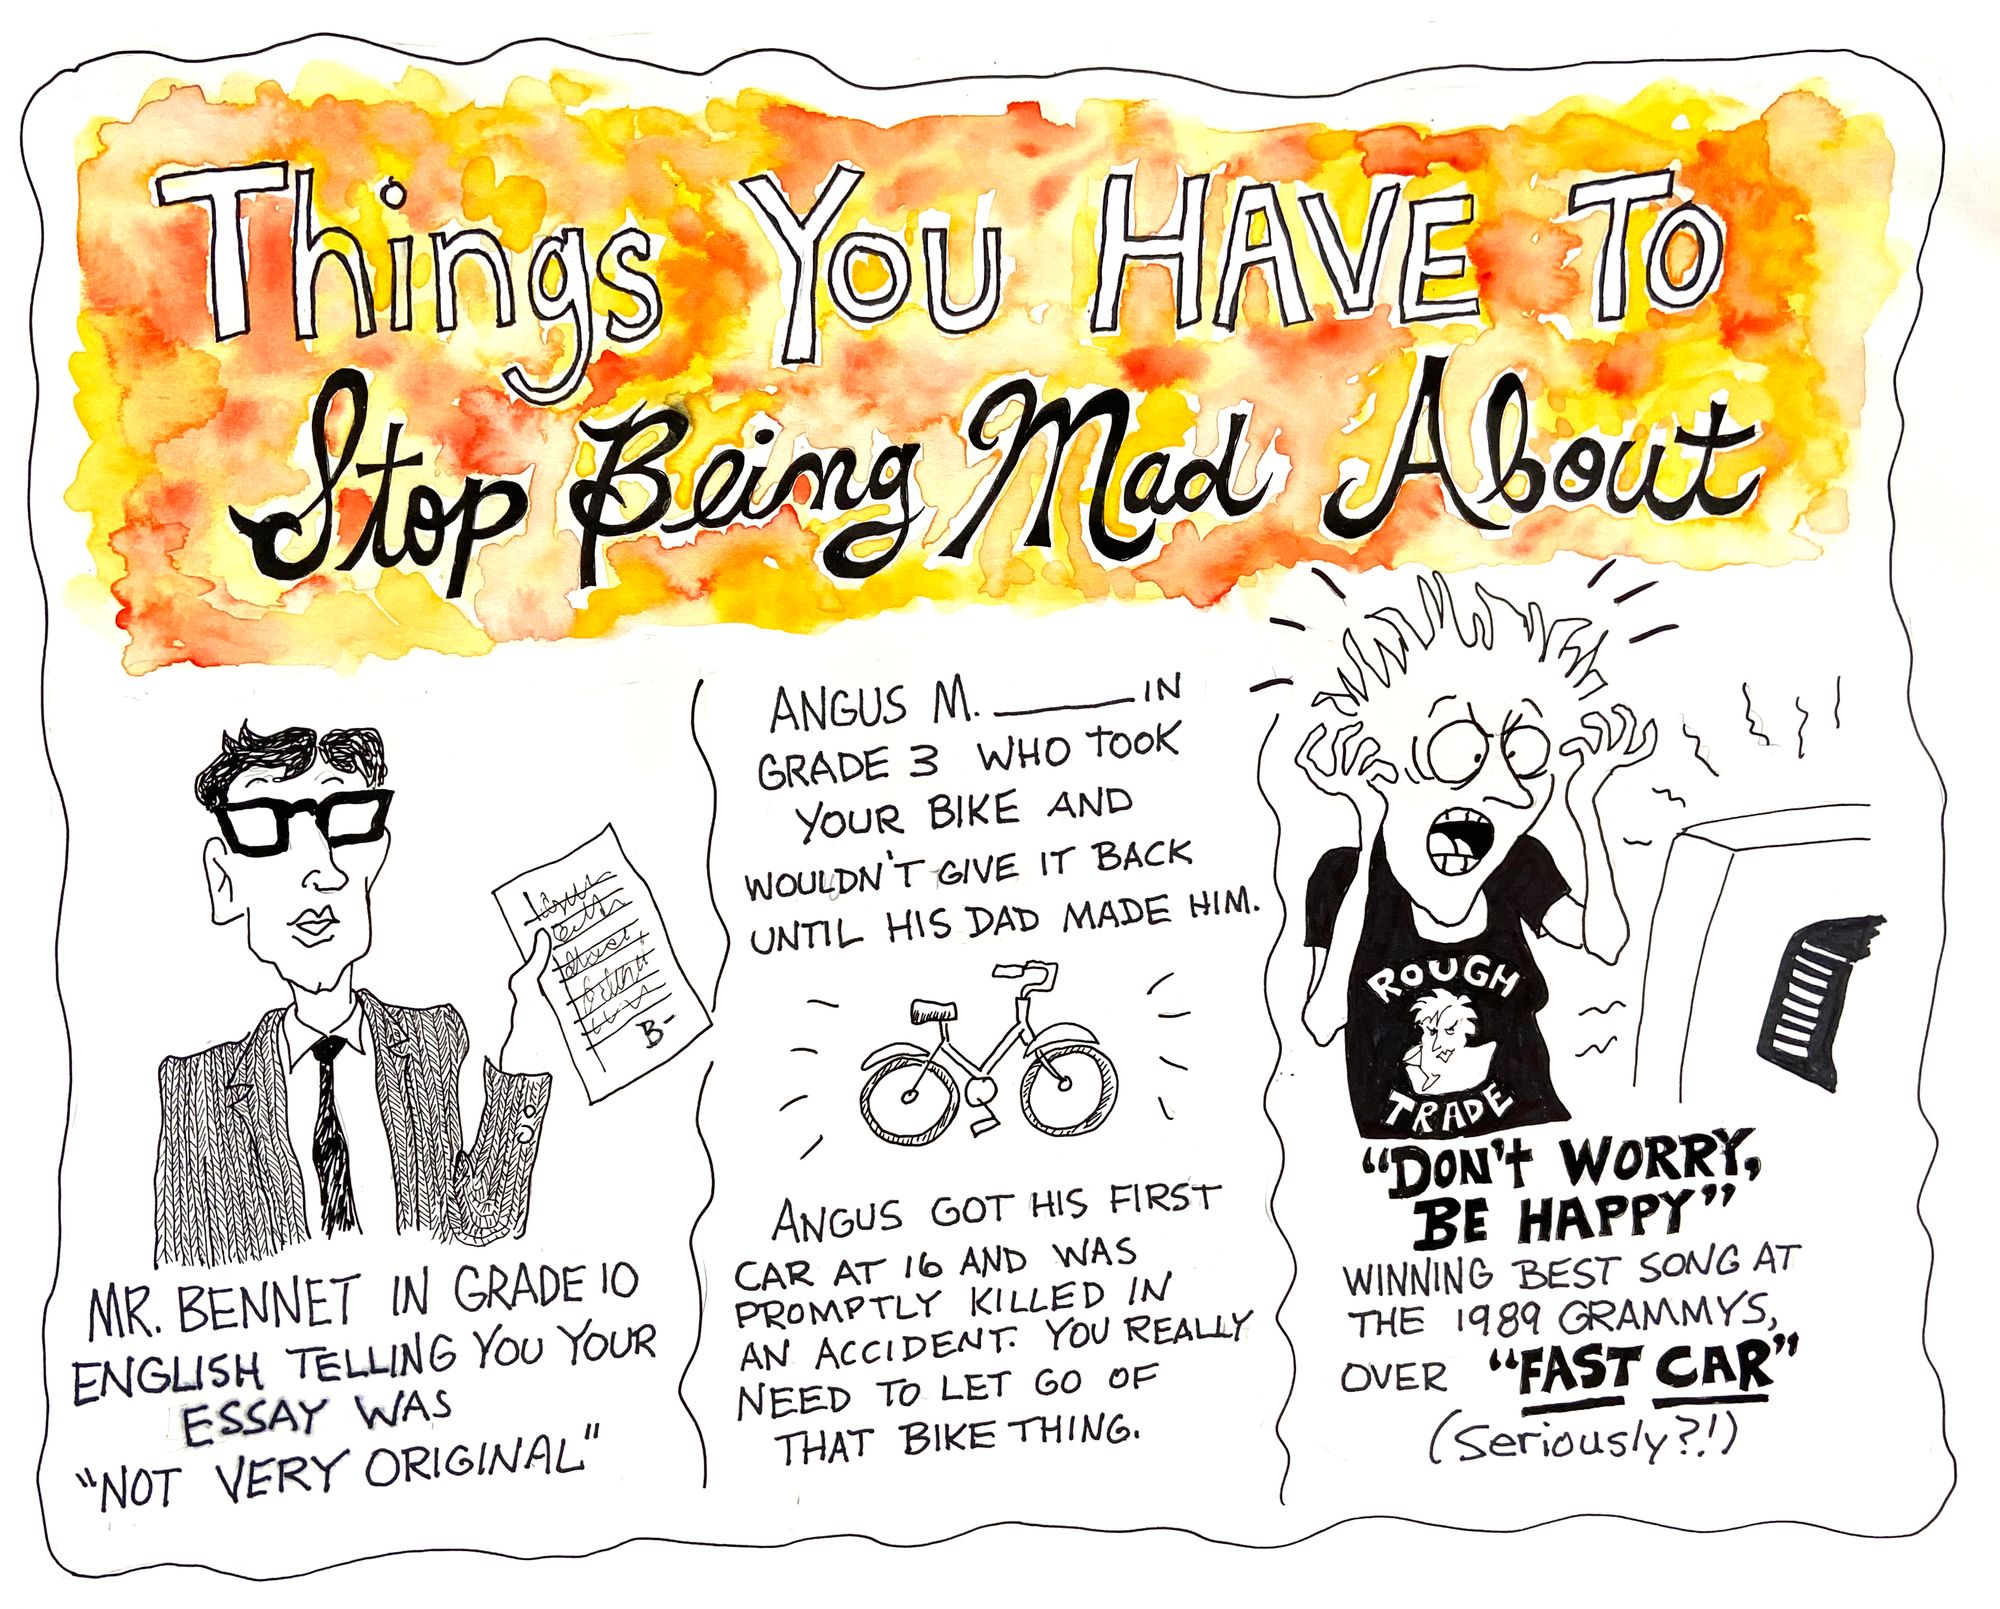 Things You HAVE To
Stop Being Mad About
B-
MR. BENNET IN GRADE 10
ENGLISH TELLING YOU YOUR
ESSAY WAS
"NOT VERY ORIGINAL"
ANGUS M. ______ IN
GRADE 3 WHO TOOK
YOUR BIKE AND
WOULDN'T GIVE IT BACK
UNTIL HIS DAD MADE HIM.
ANGUS GOT HIS FIRST
CAR AT 16 AND WAS
PROMPTLY KILLED IN
AN ACCIDENT. YOU REALLY
NEED TO LET GO OF
THAT BIKE THING.
ROUGH
TRADE
"DON't WORRY,
BE HAPPY"
WINNING BEST SONG AT
THE 1989 GRAMMYS,
OVER "FAST CAR"
(Seriously?!)